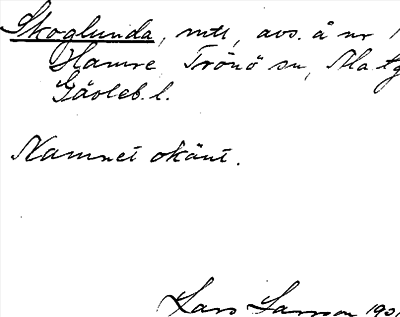 Skoglunda, mtl, avs. å nr 1
Hamre Trönö sn, Ala tg
Gävleb. l.
Namnet okänt.
Lars Larsson 193